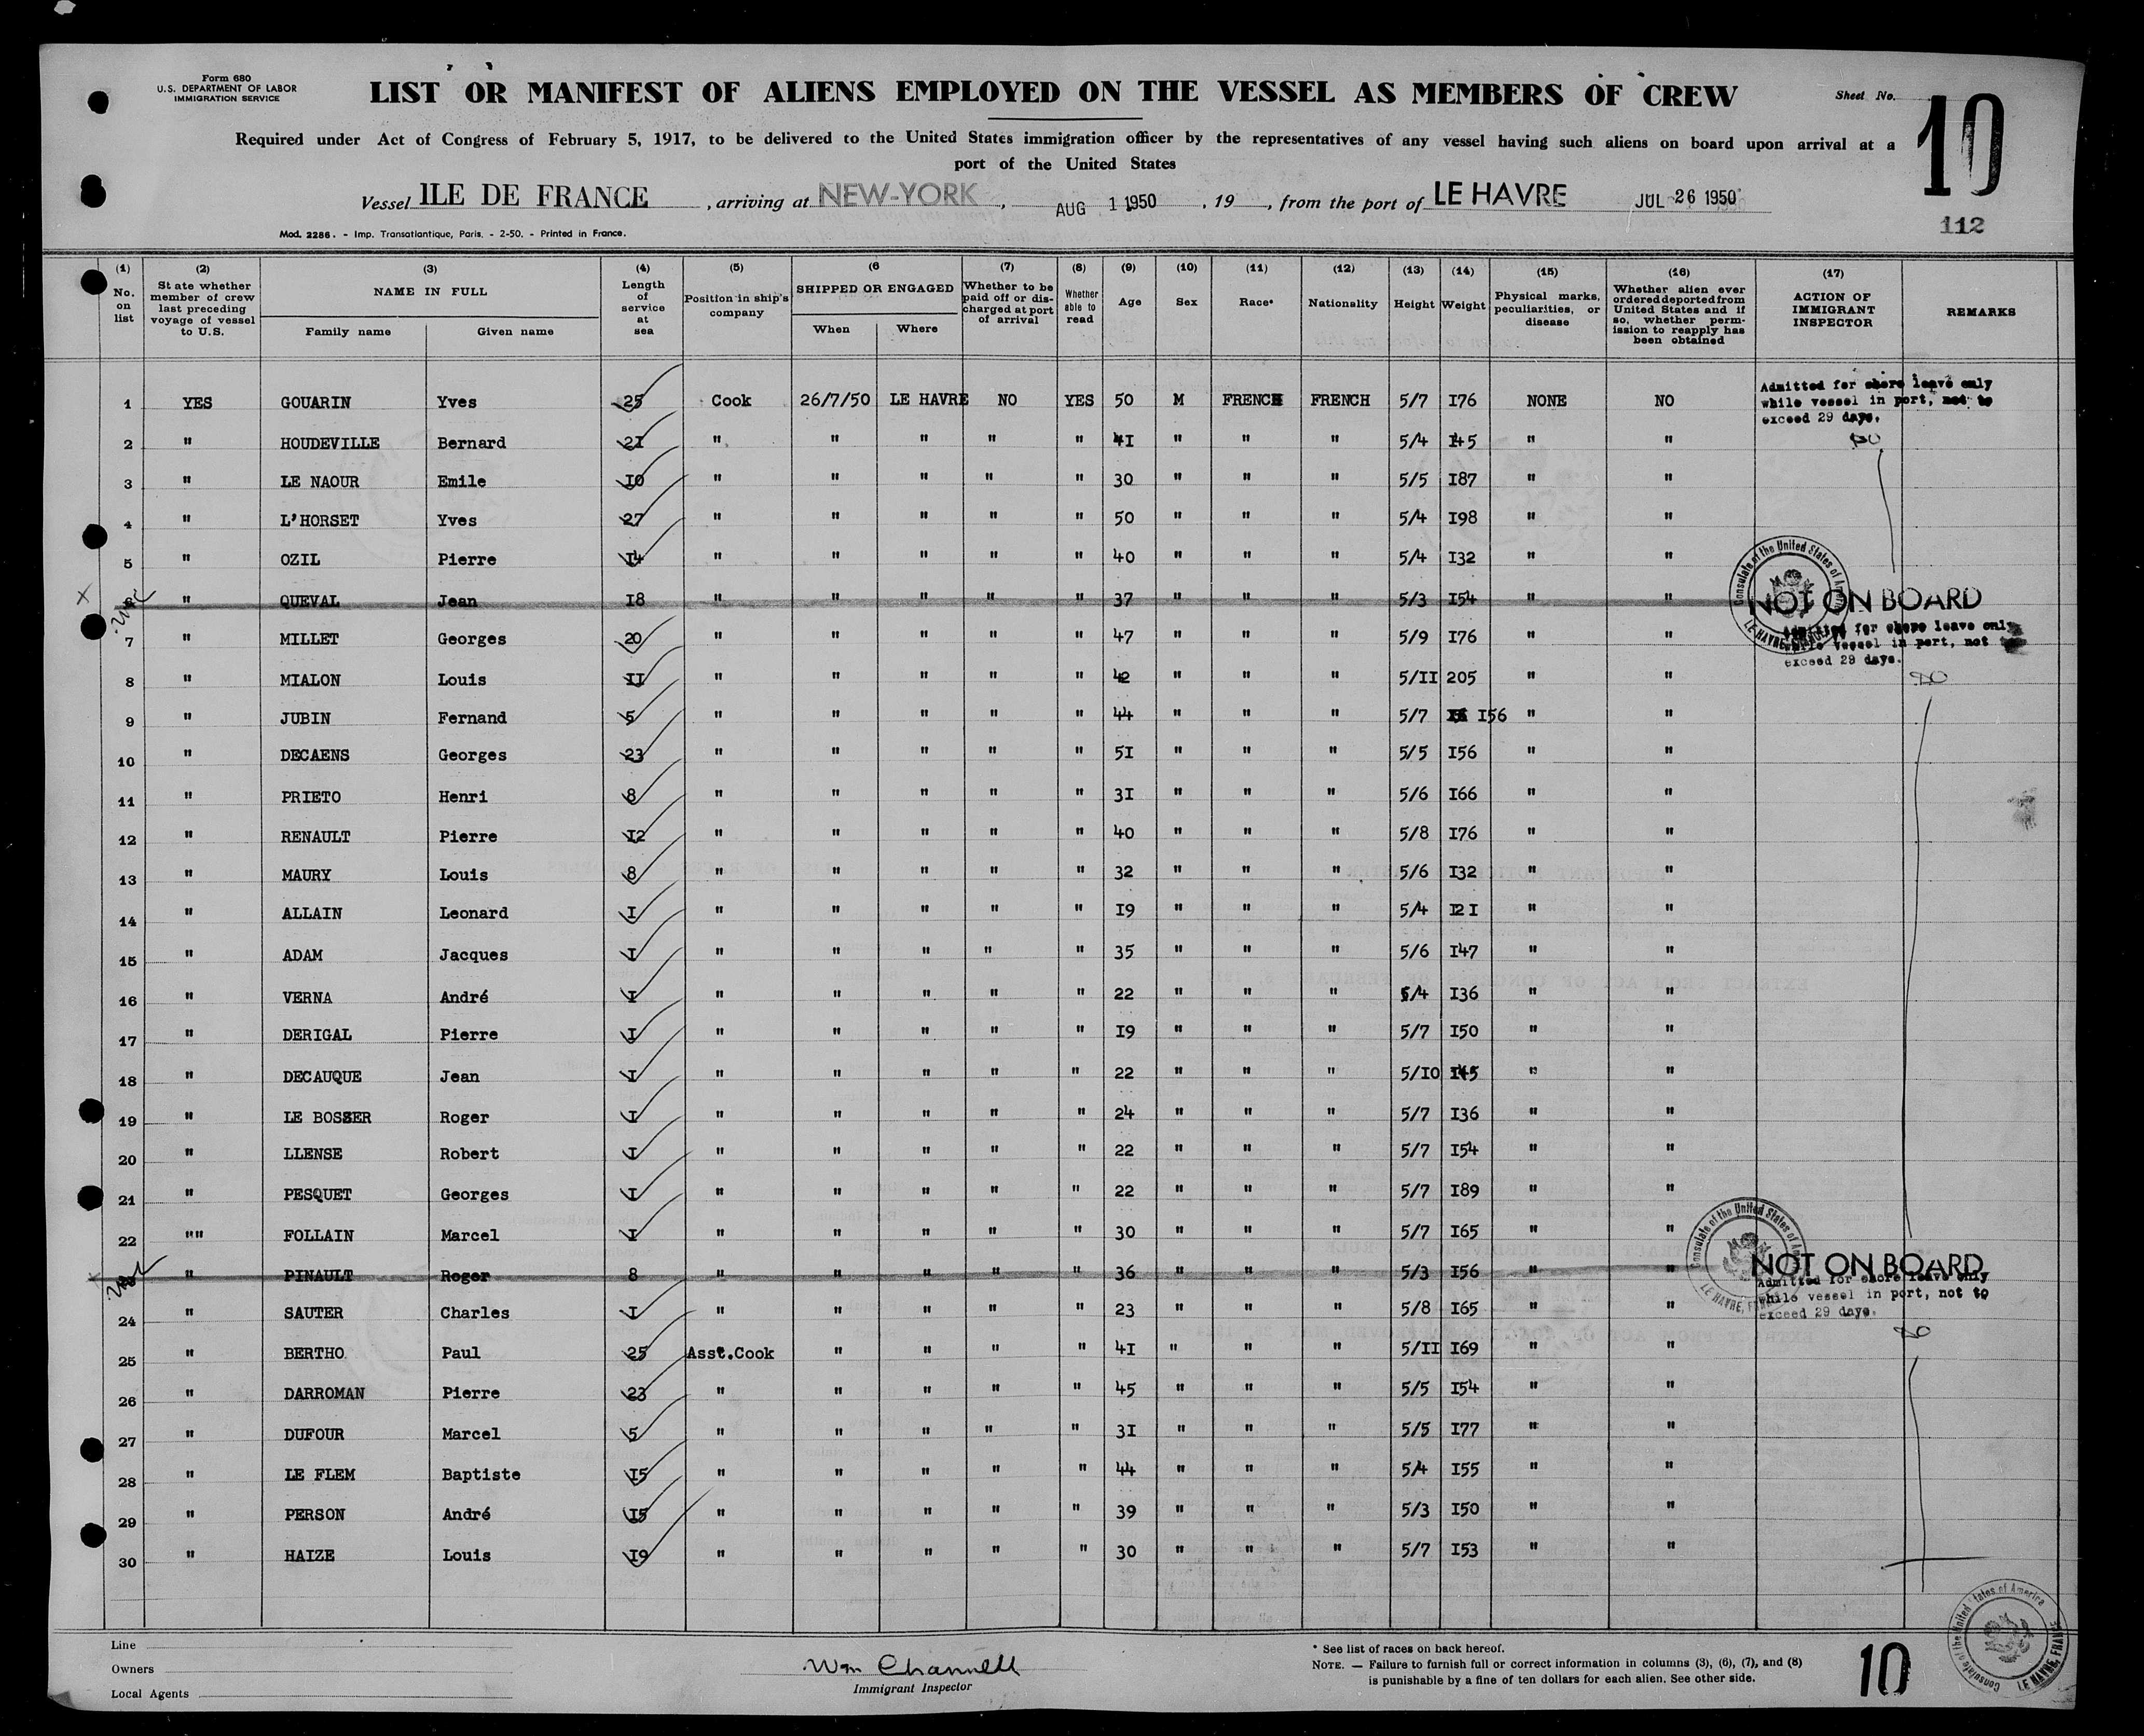 Form 680
U.S. DEPARTMENT OF LABOR
IMMIGRATION SERVICE
LIST OR MANIFEST OF ALIENS EMPLOYED ON THE VESSEL AS MEMBERS OF CREW
Sheet No. 10
Required under Act of Congress of February 5, 1917, to be delivered to the United States immigration officer by the representatives of any vessel having such aliens on board upon arrival at a
port of the United States
Vessel ILE DE FRANCE, arriving at NEW-YORK, AUG 1 1950, 19 , from the port of LE HAVRE JUL 26 1950
112
Mod. 2286. - Imp. Transatlantique, Paris. - 2-50. - Printed in France.
(1) No. on list (2) State whether member of crew last preceding voyage of vessel to U.S. (3) NAME IN FULL Family name Given name (4) Length of service at sea (5) Position in ship's company (6 SHIPPED OR ENGAGED When Where (7) Whether to be paid off or discharged at port of arrival (8) Whether able to read (9) Age (10) Sex (11) Race* (12) Nationality (13) Height (14) Weight (15) Physical marks, peculiarities, or disease (16) Whether alien ever ordered deported from United States and if so, whether permission to reapply has been obtained (17) ACTION OF IMMIGRANT INSPECTOR REMARKS
1 YES GOUARIN Yves 25 Cook 26/7/50 LE HAVRE NO YES 50 M FRENCH FRENCH 5/7 I76 NONE NO Admitted for shore leave only while vessel in port, not to exceed 29 days.
2 " HOUDEVILLE Bernard 2I " " " " " 4I " " " 5/4 I45 " "
3 " LE NAOUR Emile I0 " " " " " 30 " " " 5/5 I87 " "
4 " L'HORSET Yves 27 " " " " " 50 " " " 5/4 I98 " "
5 " OZIL Pierre I4 " " " " " 40 " " " 5/4 I32 " "
6 " QUEVAL Jean I8 " " " " " 37 " " " 5/3 I54 " " NOT ON BOARD
7 " MILLET Georges 20 " " " " " 47 " " " 5/9 I76 " " Admitted for shore leave only while vessel in port, not to exceed 29 days.
8 " MIALON Louis II " " " " " 42 " " " 5/II 205 " "
9 " JUBIN Fernand 5 " " " " " 44 " " " 5/7 I56 " "
10 " DECAENS Georges 23 " " " " " 5I " " " 5/5 I56 " "
11 " PRIETO Henri 8 " " " " " 3I " " " 5/6 I66 " "
12 " RENAULT Pierre I2 " " " " " 40 " " " 5/8 I76 " "
13 " MAURY Louis 8 " " " " " 32 " " " 5/6 I32 " "
14 " ALLAIN Leonard I " " " " " I9 " " " 5/4 I2I " "
15 " ADAM Jacques I " " " " " 35 " " " 5/6 I47 " "
16 " VERNA André I " " " " " 22 " " " 5/4 I36 " "
17 " DERIGAL Pierre I " " " " " I9 " " " 5/7 I50 " "
18 " DECAUQUE Jean I " " " " " 22 " " " 5/I0 I45 " "
19 " LE BOSSER Roger I " " " " " 24 " " " 5/7 I36 " "
20 " LLENSE Robert I " " " " " 22 " " " 5/7 I54 " "
21 " PESQUET Georges I " " " " " 22 " " " 5/7 I89 " "
22 "" FOLLAIN Marcel I " " " " " 30 " " " 5/7 I65 " "
" PINAULT Roger 8 " " " " " 36 " " " 5/3 I56 " " NOT ON BOARD
24 " SAUTER Charles I " " " " " 23 " " " 5/8 I65 " " Admitted for shore leave only while vessel in port, not to exceed 29 days.
25 " BERTHO Paul 25 Asst.Cook " " " " 4I " " " 5/II I69 " "
26 " DARROMAN Pierre 23 " " " " " 45 " " " 5/5 I54 " "
27 " DUFOUR Marcel 5 " " " " " 3I " " " 5/5 I77 " "
28 " LE FLEM Baptiste I5 " " " " " 44 " " " 5/4 I55 " "
29 " PERSON André I5 " " " " " 39 " " " 5/3 I50 " "
30 " HAIZE Louis I9 " " " " " 30 " " " 5/7 I53 " "
Consulate of the United States of America
LE HAVRE, FRANCE
Consulate of the United States of America
LE HAVRE, FRANCE
Consulate of the United States of America
LE HAVRE, FRANCE
Line
Owners
Local Agents
Wm Channell
Immigrant Inspector
* See list of races on back hereof.
NOTE. — Failure to furnish full or correct information in columns (3), (6), (7), and (8)
is punishable by a fine of ten dollars for each alien. See other side.
10